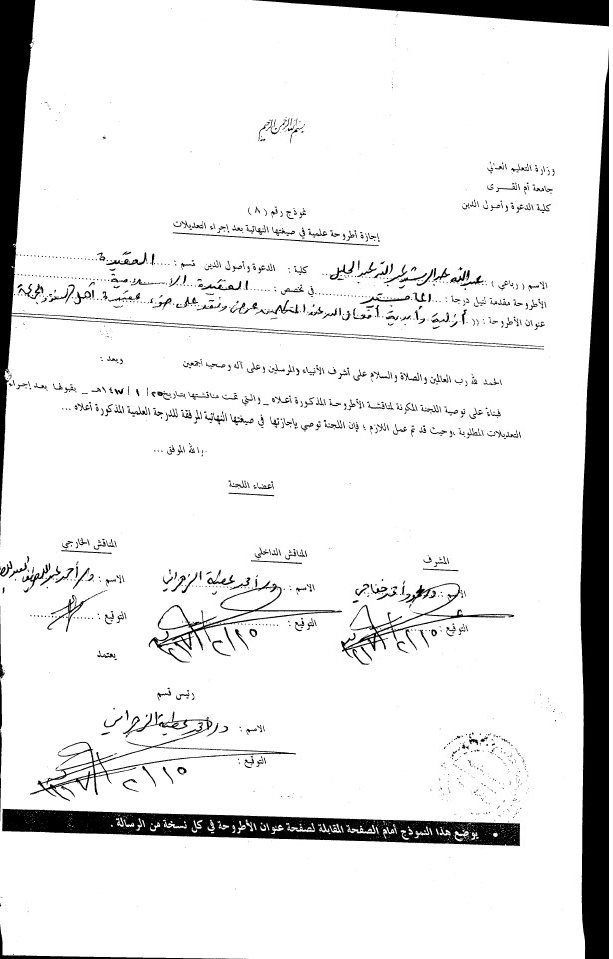 بسم الله الرحمن الرحيم
وزارة التعليم العالي
جامعة أم القرى
كلية الدعوة وأصول الدين
نموذج رقم ( ٨ )
إجازة أطروحة علمية في صيغتها النهائية بعد إجراء التعديلات
الاسم ( رباعي ) : عبدالله عبدالرشيد عبدالله عبدالجليل كلية : الدعوة وأصول الدين قسم : العقيدة
الأطروحة مقدمة لنيل درجة : الماجستير في تخصص : العقيدة الإسلامية
عنوان الأطروحة : (( أزلية وأبدية أفعال الله عند المتكلمين عرض ونقد على ضوء عقيدة أهل السنة والجماعة
الحمد لله رب العالمين والصلاة والسلام على أشرف الأنبياء والمرسلين وعلى آله وصحبه أجمعين وبعد :
فبناءً على توصية اللجنة المكونة لمناقشة الأطروحة المذكورة أعلاه _ والتي تمت مناقشتها بتاريخ ٢٥ / ١ / ١٤١٧هـ _ بقبولها بعد إجراء
التعديلات المطلوبة ،وحيث قد تم عمل اللازم ؛ فإن اللجنة توصي بإجازتها في صيغتها النهائية المرفقة للدرجة العلمية المذكورة أعلاه ...
والله الموفق ...
أعضاء اللجنة
المشرف المناقش الداخلي المناقش الخارجي
الاسم : د. محمود أحمد خفاجي الاسم : د. أحمد عطية الزهراني الاسم : د. أحمد عبداللطيف العبداللطيف
التوقيع : التوقيع : التوقيع :
يعتمد
رئيس قسم
الاسم : د. أحمد عطية الزهراني
التوقيع :
• يوضع هذا النموذج أمام الصفحة المقابلة لصفحة عنوان الأطروحة في كل نسخة من الرسالة .